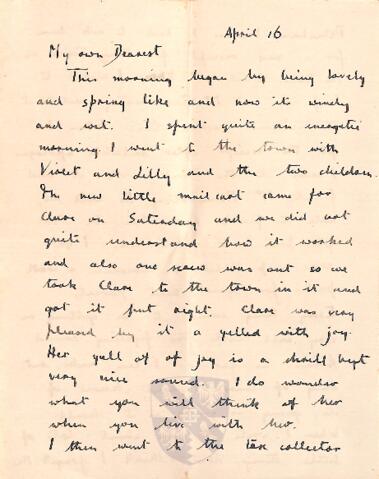 April 16
My own Dearest
This morning began by being lovely
and spring like and now it windy
and wet. I spent quite an energetic
morning. I went to the town with
Violet and Lilly and the two children.
The new little mailcart came for
Clare on Saturday and we did not
quite understand how it worked
and also one screw was out so we
took Clare to the town in it and
got it put right. Clare was very
pleased by it a yelled with joy.
Her yell of of joy is a shrill
very nice sound. I do wonder
what you will think of her
when you live with her.
I then went to the tax collector